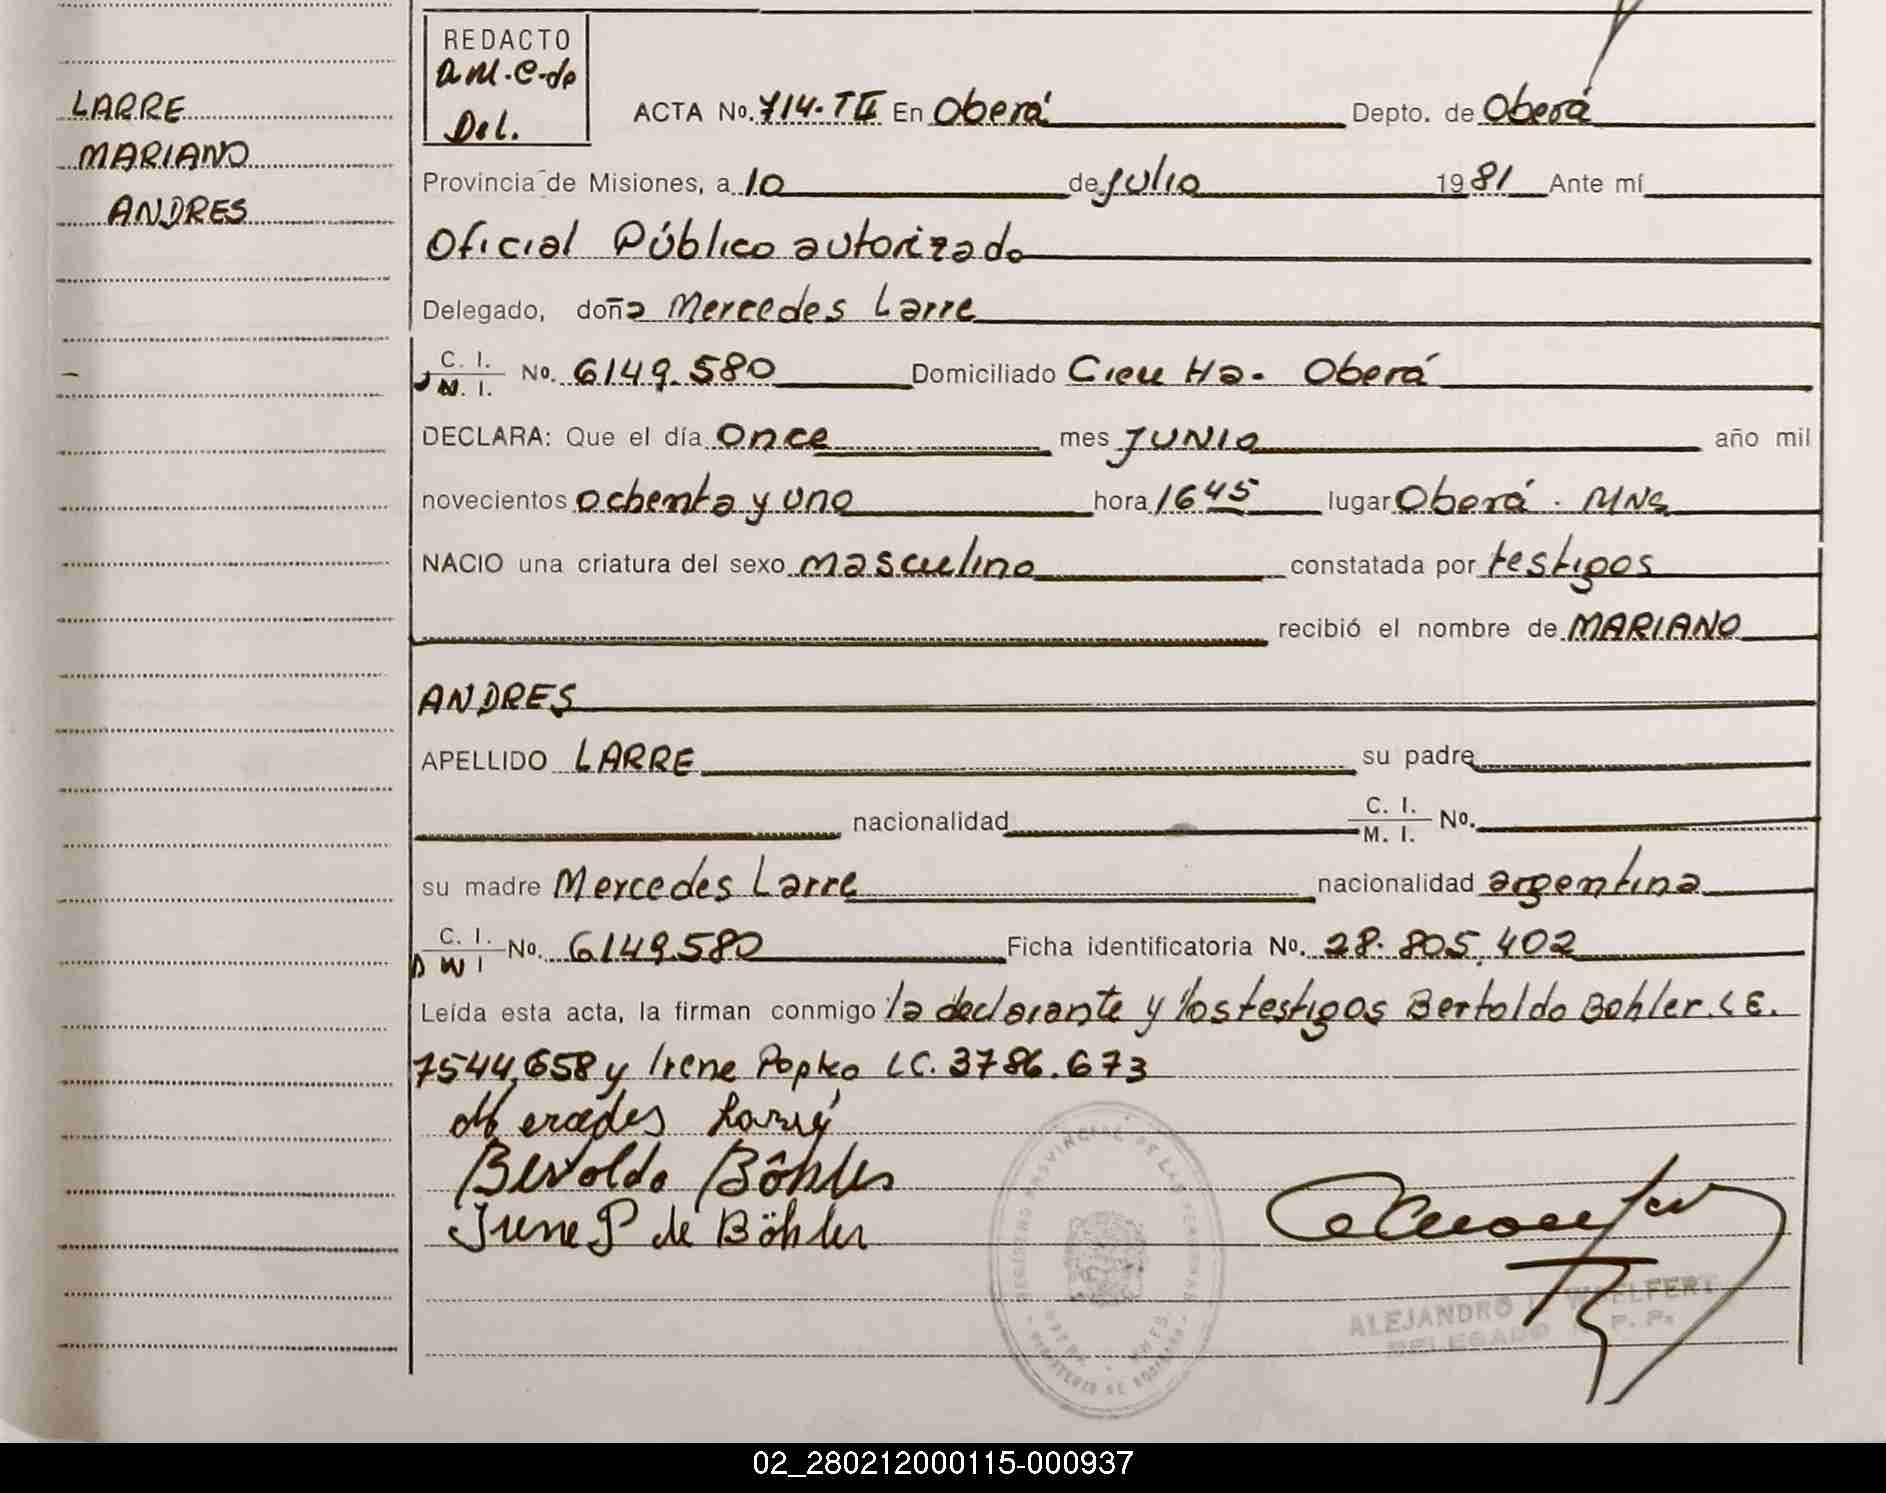 LARRE
MARIANO
ANDRES
REDACTO
D.M.C-de
Del.
ACTA No. 714-TII En Oberá Depto. de Oberá
Provincia de Misiones, a 10 de julio 1981 Ante mí
Oficial Público autorizado
Delegado, doña Mercedes Larre
C. I. / N. I. No. 6149.580 Domiciliado Cien Ha. Oberá
DECLARA: Que el día once mes JUNIO año mil
novecientos ochenta y uno hora 16 45 lugar Oberá . MNS
NACIO una criatura del sexo masculino constatada por testigos
recibió el nombre de MARIANO
ANDRES
APELLIDO LARRE su padre
nacionalidad C. I. / M. I. No.
su madre Mercedes Larre nacionalidad argentina
C. I. / D N I No. 6149.580 Ficha identificatoria No. 28.805.402
Leída esta acta, la firman conmigo la declarante y los testigos Bertoldo Bohler. LE.
7544.658 y Irene Popko LC. 3786.673
Mercedes Larré
Bertoldo Böhler
Irene P de Böhler
REGISTRO PROVINCIAL DE LAS PERSONAS
MINISTERIO DE GOBIERNO
ALEJANDRO WOELFERT
DELEGADO R. P. P.
02_280212000115-000937